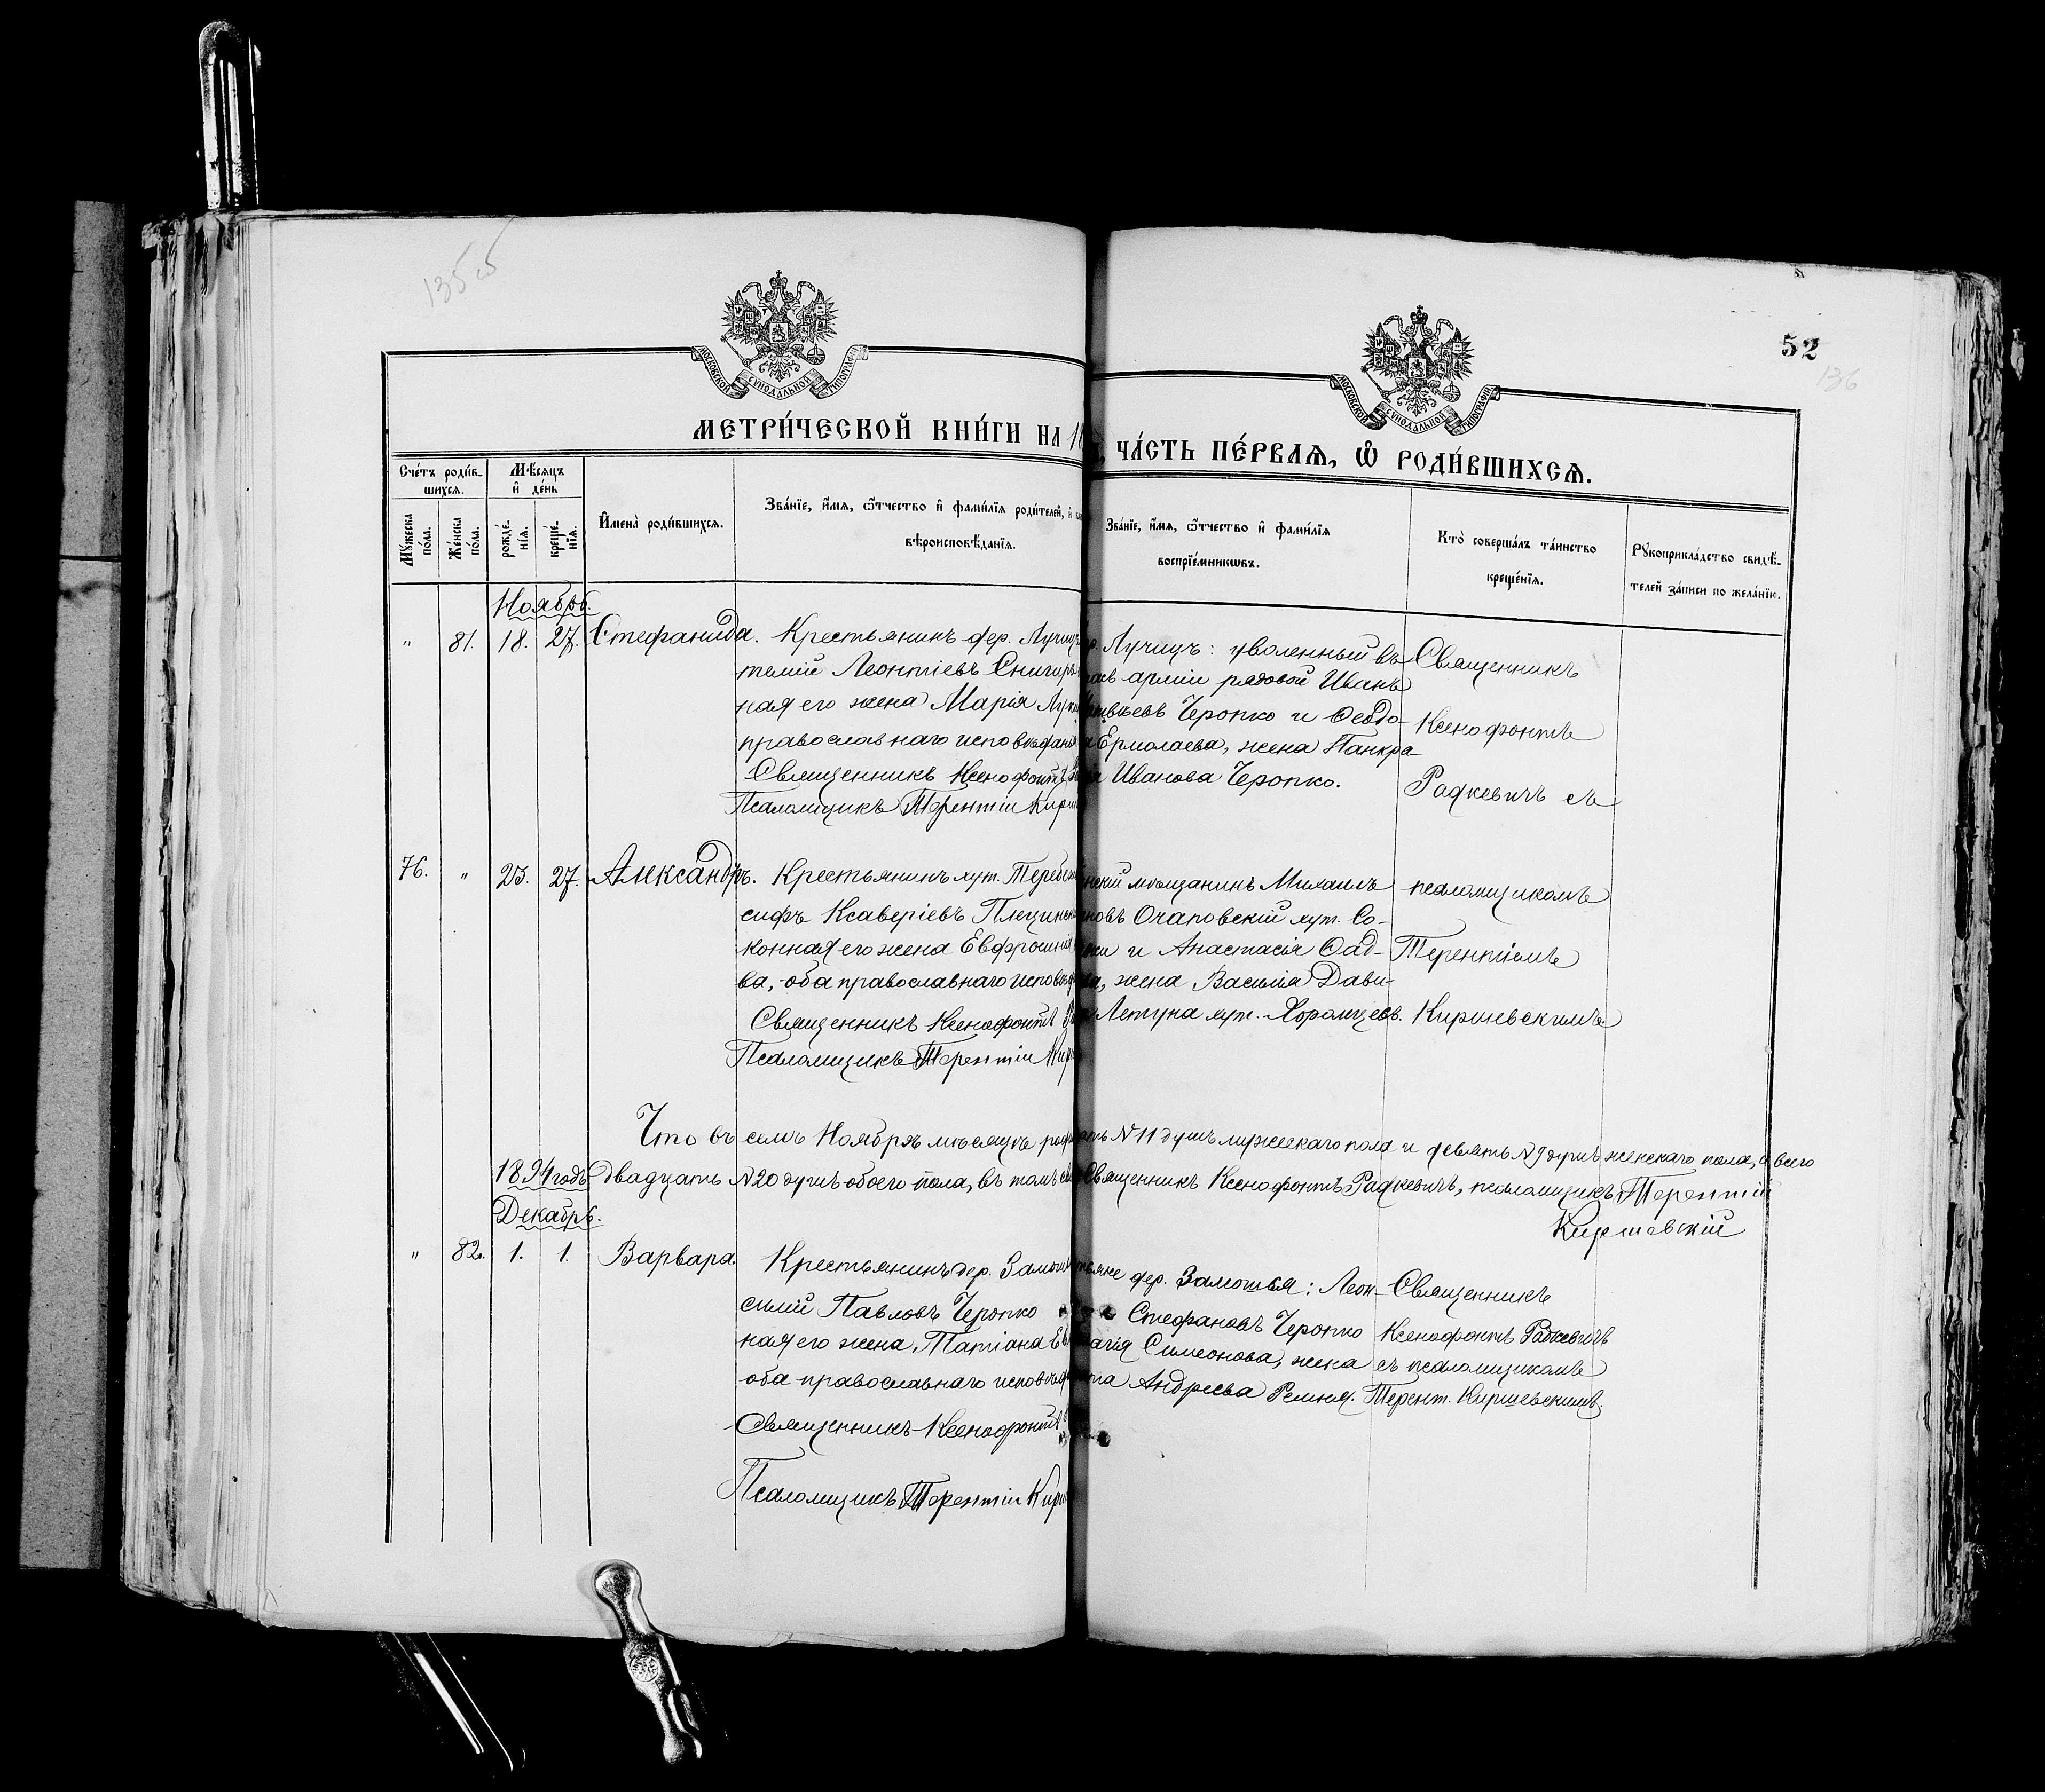 135об
52
136
МОСКОВСКОЙ СѴНОДАЛЬНОЙ ТИПОГРАФІИ
МОСКОВСКОЙ СѴНОДАЛЬНОЙ ТИПОГРАФІИ
МЕТРИ́ЧЕСКОЙ КНИ́ГИ НА 18
ЧА́СТЬ ПЕ́РВАѦ, Ѡ҆ РОДИ́ВШИХСѦ.
Сче́тъ роди́в-
шихсѧ.
Мѣ́сѧцъ
и҆ де́нь
Мꙋ́жеска
по́ла.
Же́нска
по́ла.
рожде́-
нїѧ.
креще́-
нїѧ.
И҆мена̀ роди́вшихсѧ.
Зва́нїе, и҆́мѧ, ѻ҆́тчество и҆ фами́лїѧ роди́телей, и҆
вѣроисповѣ́данїѧ.
Зва́нїе, и҆́мѧ, ѻ҆́тчество и҆ фами́лїѧ
воспрїе́мникѡвъ.
Кто̀ соверша́лъ та́инство
креще́нїѧ.
Рꙋкоприкла́дство свидѣ́-
телей за́писи по жела́нїю.
Ноябрь.
" 81. 18. 27. Стефанида.
Крестьянинъ дер. Лучиц
телій Леонтіевъ Снигирь
ная его жена Марія Лук
православнаго исповѣдані
Священникъ Ксенофонтъ
Псаломщикъ Терентій Кирш
Лучицъ: уволенный въ
арміи рядовой Иванъ
Черопко и Ѳеодо-
Ермолаева, жена Панкра
Иванова Черопко.
Священникъ
Ксенофонтъ
Радкевичъ съ
76. " 23. 27. Александръ.
Крестьянинъ хут. Тереб
сифъ Ксаверіевъ Плещинск
конная его жена Евфросинія
ва, оба православнаго исповѣд
Священникъ Ксенофонтъ
Псаломщикъ Терентій Кир
нскій мѣщанинъ Михаилъ
новъ Очаповскій хут. Со-
и Анастасія Ѳад-
ва, жена Василія Дави-
Летуна хут. Хоромцевъ.
псаломщикомъ
Терентіемъ
Киршевскимъ.
Что въ семъ Ноябрѣ мѣсяцѣ N 11 душъ мужескаго пола и девять N 9 душъ женскаго пола, а всего
1894 годъ двадцать N 20 душъ обоего пола, въ томъ Священникъ Ксенофонтъ Радкевичъ, псаломщикъ Терентій
Киршевскій
Декабрь.
" 82. 1. 1. Варвара.
Крестьянинъ дер. Замошь
силій Павловъ Черопко
ная его жена Татіана Ев
оба православнаго исповѣд
Священникъ Ксенофонтъ
Псаломщикъ Терентій Кирш
дер. Замошья: Леон-
Стефановъ Черопко
Симеонова, жена
Андреева Ремня.
Священникъ
Ксенофонтъ Радкевичъ
съ псаломщикомъ
Терент. Киршевскимъ.